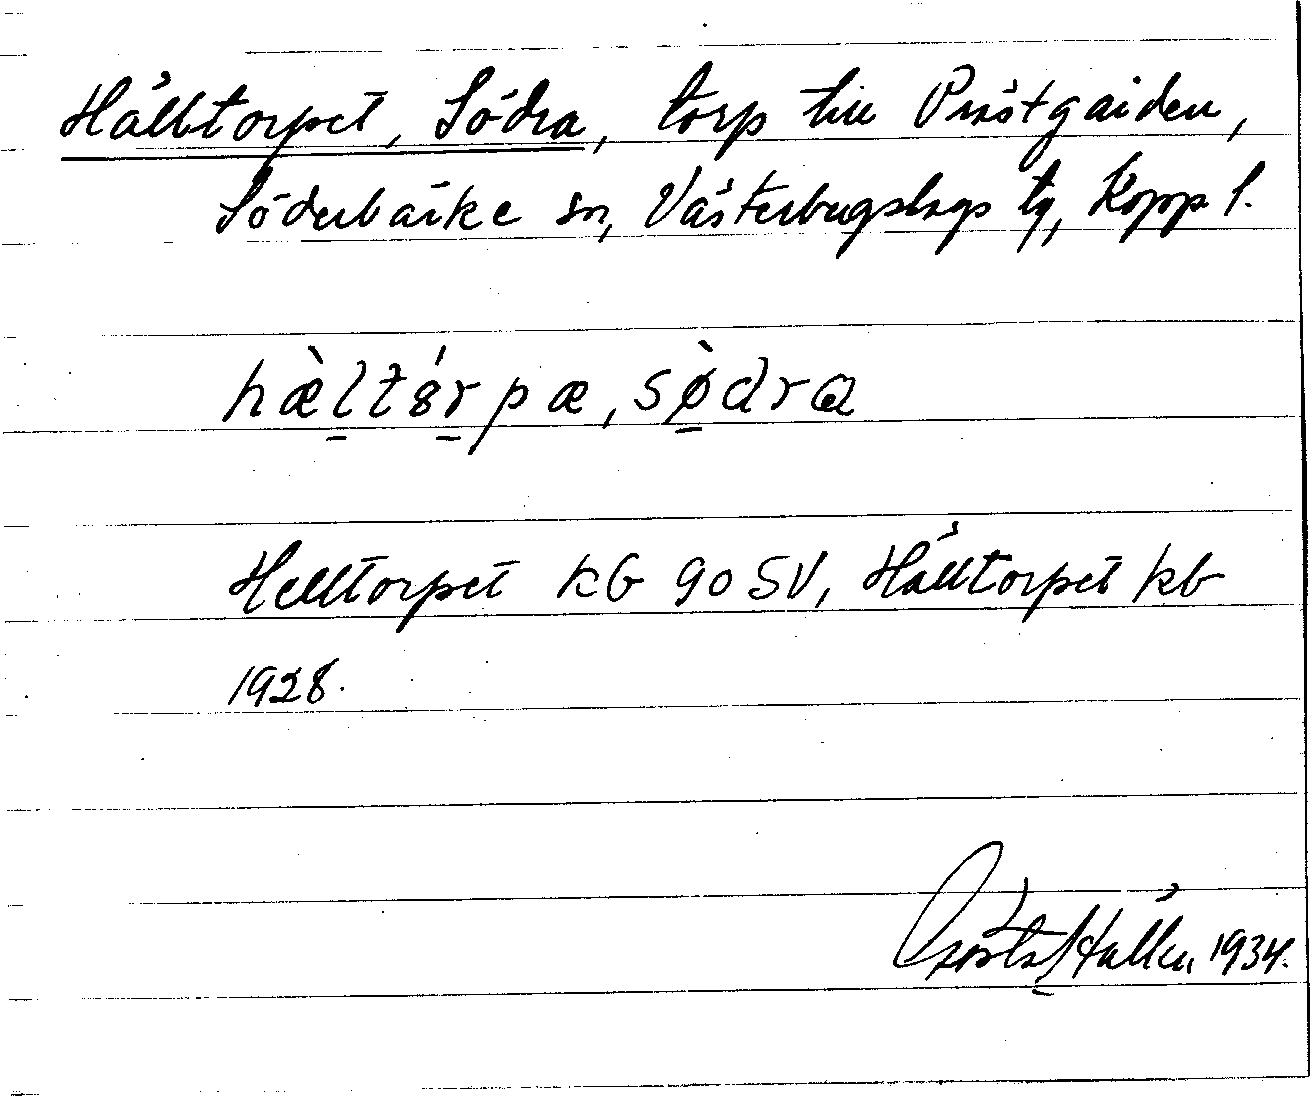 Hälltorpet, Södra, torp till Prästgården,
Söderbärke sn, Västerbergslags tg, Kopp l.
hæ̀ltórpæ, sø̀dra
Helltorpet kb 90 SV, Hälltorpet kb
1928.
Gösta Hallén 1934.